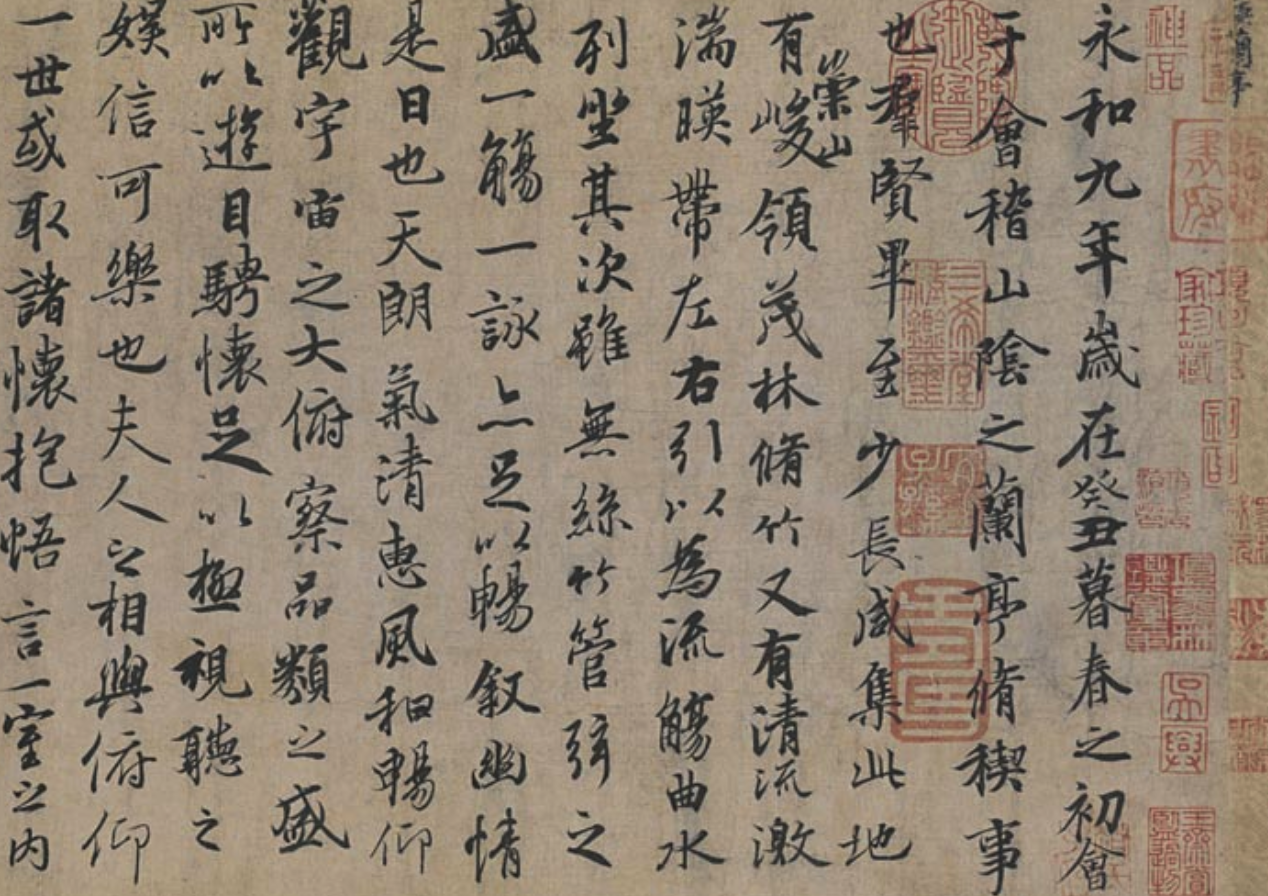 永和九年歲在癸丑暮春之初會
于會稽山陰之蘭亭脩稧事
也羣賢畢至少長咸集此地
有崇山峻領茂林脩竹又有清流激
湍暎帶左右引以為流觴曲水
列坐其次雖無絲竹管弦之
盛一觴一詠亦足以暢敘幽情
是日也天朗氣清惠風和暢仰
觀宇宙之大俯察品類之盛
所以遊目騁懷足以極視聽之
娛信可樂也夫人之相與俯仰
一世或取諸懷抱悟言一室之內
神品
書府
家珍藏
三希堂